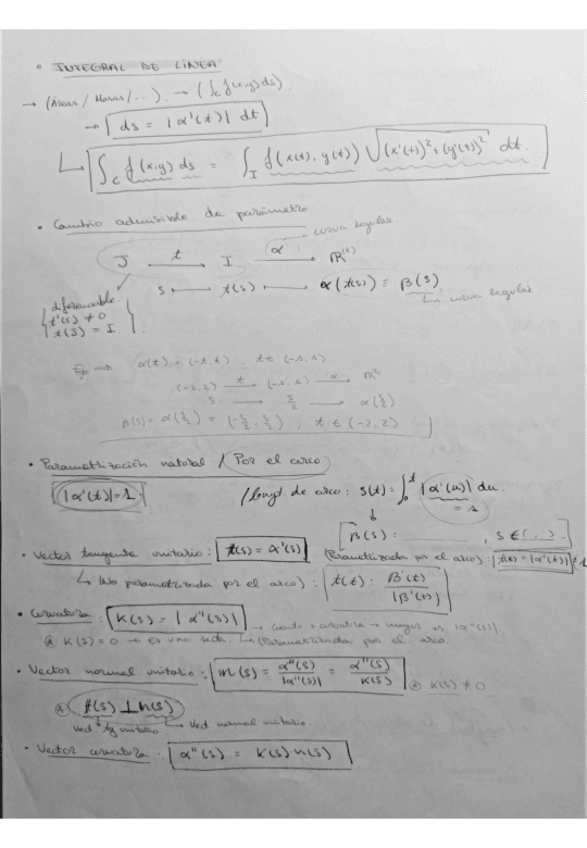 • INTEGRAL DE LÍNEA
→ (Áreas / Masas / ...). → (∫_C f(x,y) ds).
→ ds = |α'(t)| dt
↳ ∫_C f(x,y) ds = ∫_I f(x(t), y(t)) √((x'(t))² + (y'(t))²) dt.
• Cambio admisible de parámetro
J —t→ I —α→ ℝ^(2) curva regular
s ⟼ t(s) ⟼ α(t(s)) ≡ β(s)
↳ curva regular
diferenciable.
t'(s) ≠ 0
t(J) = I
α(t) = (-t, t) ; t ∈ (-1, 1).
(-2,2) —t→ (-1,1) —α→ ℝ²
s → s/2 → α(s/2)
β(s) = α(s/2) = (-s/2, s/2) ; t ∈ (-2, 2)
• Parametrización natural / Por el arco
|α'(t)| = 1 / longt. de arco : s(t) = ∫_0^t |α'(u)| du
= 1
β(s) = ______ , s ∈ ( , ).
• Vector tangente unitario : t(s) = α'(s) (Parametrizada por el arco) :
↳ (No parametrizada por el arco) : t(t) : β'(t) / |β'(t)|
• Curvatura : K(s) = |α''(s)| → Cuanto + curvatura → mayor es |α''(s)|
⊛ K(s) = 0 → Es una recta. ↳ (Parametrizada por el arco.
• Vector normal unitario : n(s) = α''(s) / |α''(s)| = α''(s) / K(s) ⊛ K(s) ≠ 0
⊛ t(s) ⊥ n(s)
Vect tg unitario. Vect normal unitario.
• Vector curvatura : α''(s) = K(s) n(s)